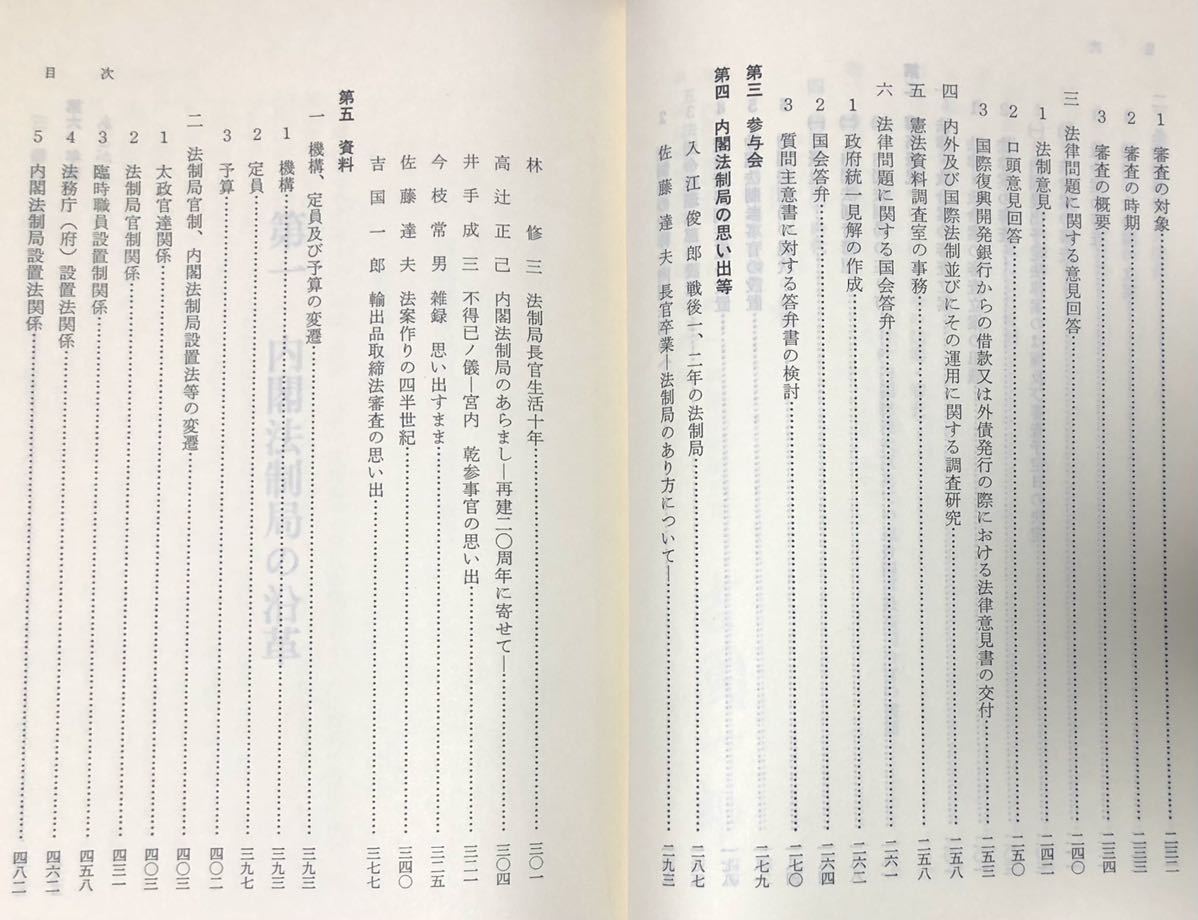 1 審査の対象……二三二
2 審査の時期……二三三
3 審査の概要……二三四
三 法律問題に関する意見回答……二四〇
1 法制意見……二四二
2 口頭意見回答……二五〇
3 国際復興開発銀行からの借款又は外債発行の際における法律意見書の交付……二五三
四 内外及び国際法制並びにその運用に関する調査研究……二五八
五 憲法資料調査室の事務……二五八
六 法律問題に関する国会答弁……二六一
1 政府統一見解の作成……二六二
2 国会答弁……二六四
3 質問主意書に対する答弁書の検討……二七〇
第三 参与会……二七九
第四 内閣法制局の思い出等
入江俊郎 戦後一、二年の法制局……二八七
佐藤達夫 長官卒業―法制局のあり方について―……二九三
林修三 法制局長官生活十年……三〇一
高辻正己 内閣法制局のあらまし―再建二〇周年に寄せて―……三〇四
井手成三 不得已ノ儀―宮内 乾参事官の思い出……三二一
今枝常男 雑録 思い出すまま……三二五
佐藤達夫 法案作りの四半世紀……三四〇
吉国一郎 輸出品取締法審査の思い出……三七七
第五 資料
一 機構、定員及び予算の変遷……三九三
1 機構……三九三
2 定員……三九七
3 予算……四〇二
二 法制局官制、内閣法制局設置法等の変遷……四〇三
1 太政官達関係……四〇三
2 法制局官制関係……四三一
3 臨時職員設置制関係……四五八
4 法務庁（府）設置法関係……四六二
5 内閣法制局設置法関係……四八二
目次